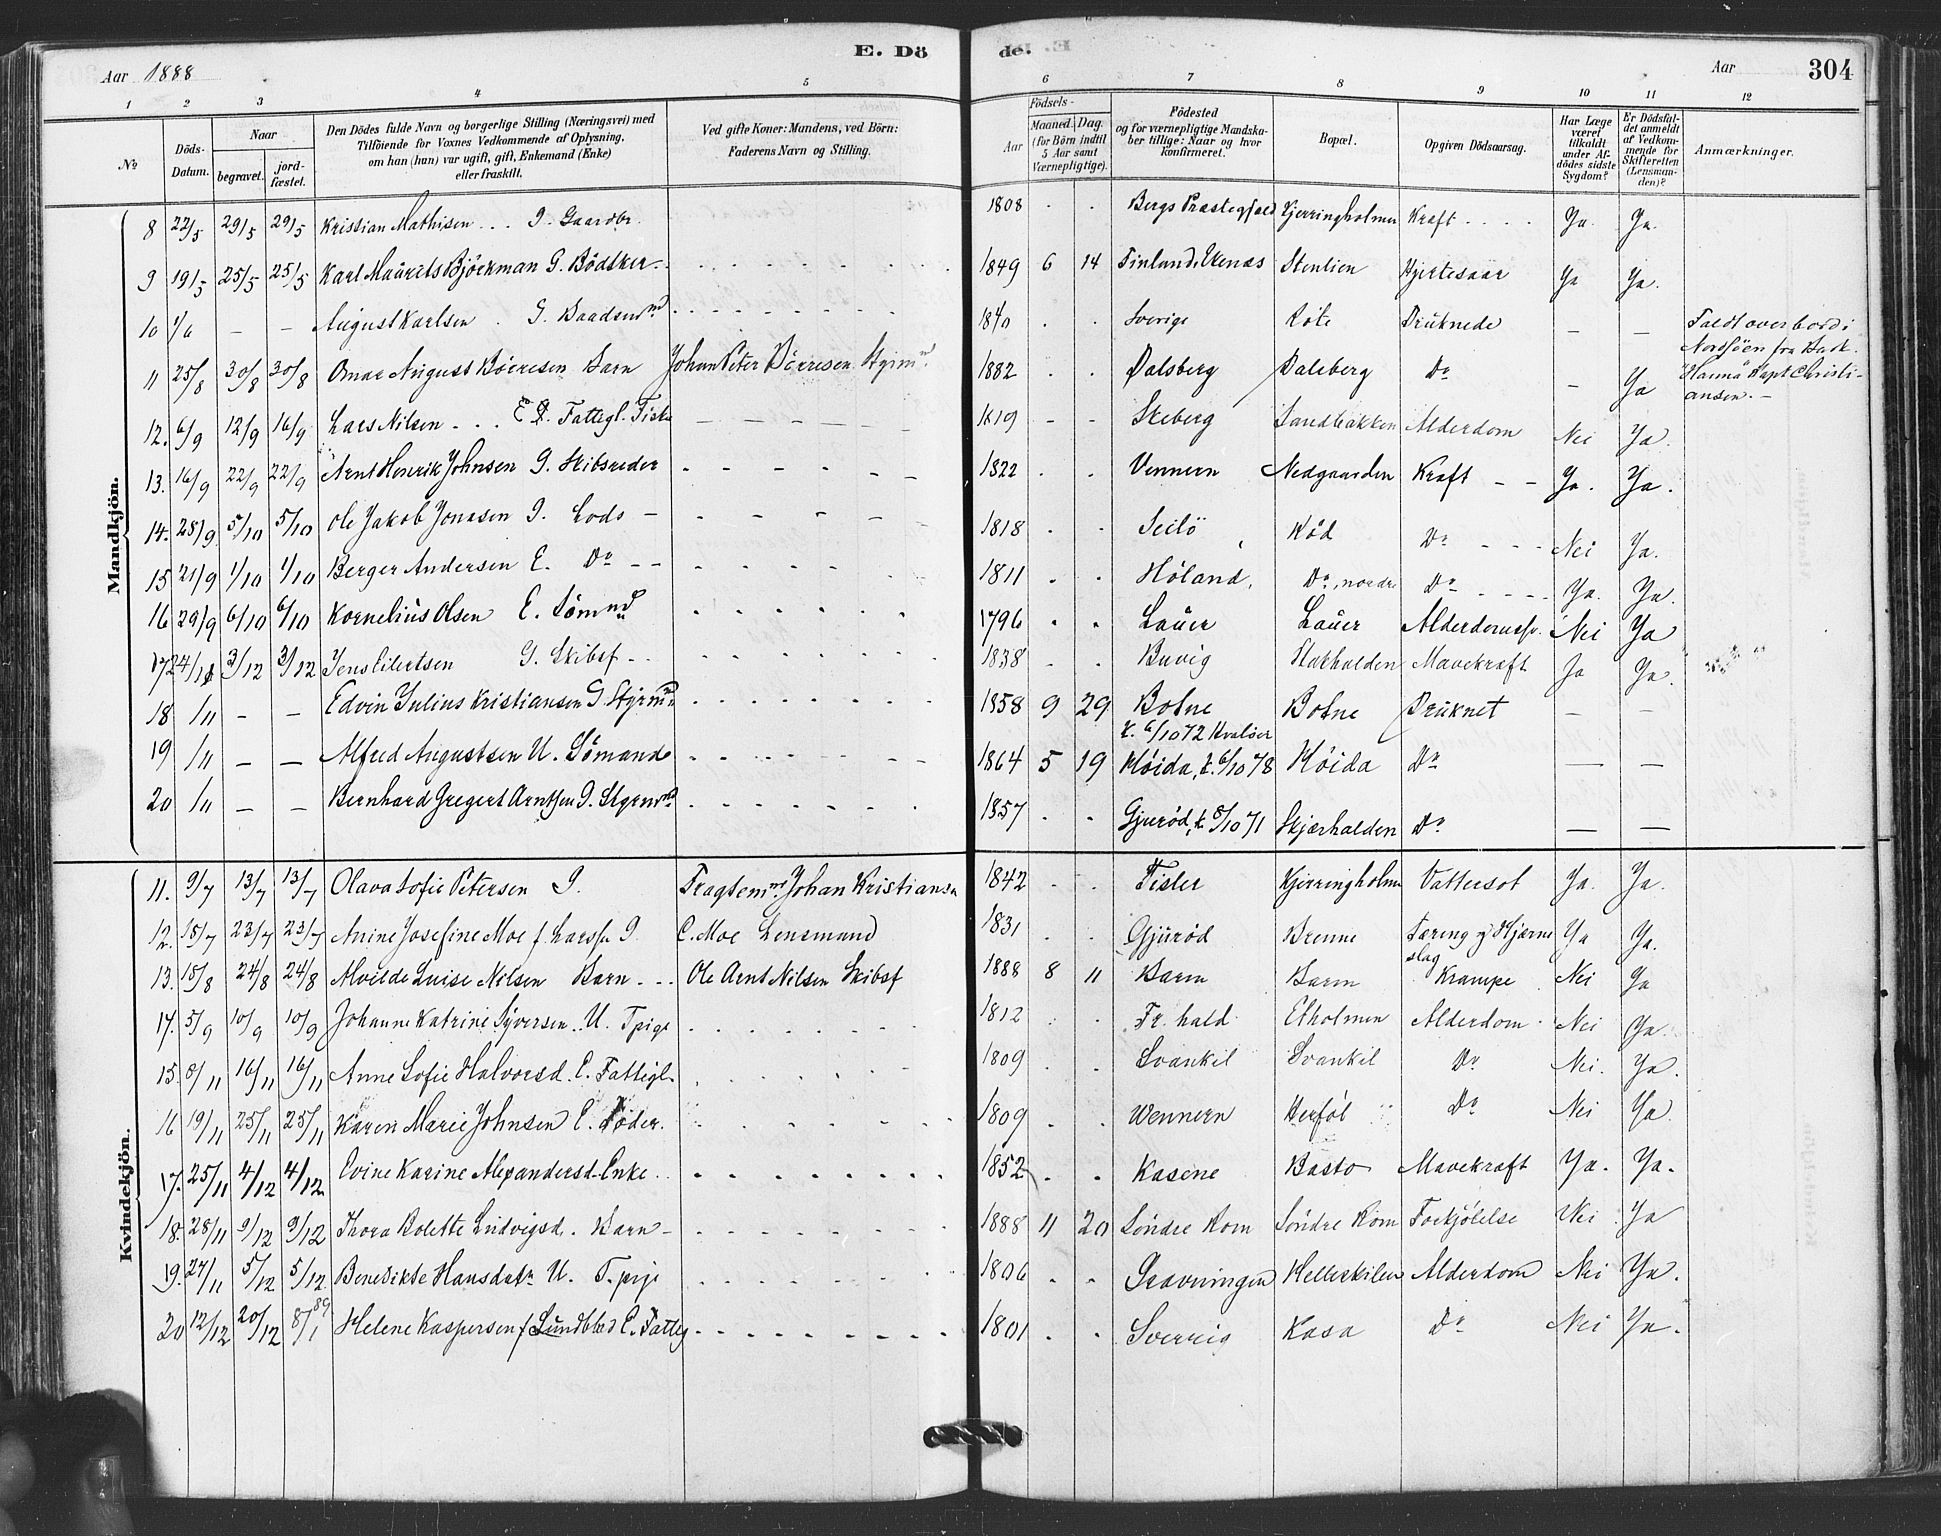 E. Döde. 304
Aar 1888 Aar
1 2 3 4 5 6 7 8 9 10 11 12
No
Döds-Datum.
Naar
begravet. jordfæstet.
Den Dödes fulde Navn og borgerlige Stilling (Næringsvei) med
Tilföiende for Voxnes Vedkommende af Oplysning,
om han (hun) var ugift, gift, Enkemand (Enke)
eller fraskilt.
Ved gifte Koner: Mandens, ved Börn:
Faderens Navn og Stilling.
Födsels-
Aar Maaned. Dag.
(for Börn indtil
5 Aar samt
Værnepligtige).
Födested
og for værnepligtige Mandskaber tillige: Naar og hvor
konfirmeret.
Bopæl.
Opgiven Dödsaarsag.
Har Læge
været
tilkaldt
under Afdödes sidste
Sygdom?
Er Dödsfaldet anmeldt
af Vedkommende for
Skifteretten
(Lensmanden)?
Anmærkninger.
Mandkjön.
8 22/5 29/5 29/5 Kristian Mathisen G. Gaardbr. 1808 Bergs Præstegjæld Kjerringholmen Kraft Ja. Ja.
9 19/5 25/5 25/5 Karl Maurits Bjöckman G. Bödtker 1849 6 14 Finland, Ekenæs Stenlien Hjertesaar Ja Ja.
10 1/6 – – August Karlsen G. Baadsmd 1840 Sverige Röte Druknede – – Faldt overbord i
Nordsöen fra Bark.
Hanna Kapt Christiansen. –
11 25/8 30/8 30/8 Omar August Börresen Barn Johan Peter Börresen Styrmd 1882 Dalsberg Dalsberg Do – Ja
12. 6/9 12/9 16/9 Lars Nilsen E. Fattigl. Fisker 1819 Skeberg Sandbakken Alderdom Nei Ja.
13. 16/9 22/9 22/9 Arnt Henrik Johnsen G. Skibsreder 1822 Vennern Nedgaarden Kraft Ja. Ja.
14. 28/9 5/10 5/10 Ole Jakob Jonasen G. Lods 1818 Seilö Röd Do Nei Ja.
15 21/9 1/10 1/10 Berger Andersen E. Do 1811 Höland, Do, nordre Do Ja. Ja.
16 29/9 6/10 6/10 Kornelius Olsen E. Sömnd 1796 Lauer Lauer Alderdomssv. Nei Ja
17 24/11 3/12 3/12 Jens Eilertsen G. Skibsf 1838 Buvig Hakhalden Mavekraft Ja Ja.
18 /11 – – Edvin Julius Kristiansen G. Styrmd 1858 9 29 Botne Botne Druknet – –
k. 6/10 72 Hvaløer
19 /11 – – Alfred Augustsen U. Sömand 1864 5 19 Höida, k. 6/10 78 Höida Do – –
20 /11 – – Bernhard Gregert Arntsen G. Styrmd 1857 Gjuröd, k 8/10 71 Skjærhalden Do – –
Kvindekjön.
11. 9/7 13/7 13/7 Olava Sofie Petersen G. Fragtemd. Johan Kristiansen 1842 Fisler Kjerringholmen Vattersot Ja. Ja.
12. 15/7 23/7 23/7 Anine Josefine Moe f. Larssen G. C. Moe Lensmand 1831 Gjuröd Brenne Tæring og Hjerneslag Ja Ja.
13. 15/8 24/8 24/8 Alvilde Luise Nilsen Barn Ole Arnt Nilsen Skibsf 1888 8 11 Barm Barm Krampe Nei Ja
17. 5/9 10/9 10/9 Johanne Katrine Syversen U. Tpige 1812 Fr. hald Etholmen Alderdom Nei Ja.
15. 8/11 16/11 16/11 Anne Sofie Halvorsd. E. Fattigl. 1809 Svankil Svankil Do Nei. Ja.
16 19/11 25/11 25/11 Karen Marie Johnsen E. Föder. 1809 Wennern Herföl Do Nei Ja.
17. 25/11 4/12 4/12 Evine Karine Alexandersd. Enke 1852 Kasene Basto Mavekraft Ja. Ja.
18. 28/11 9/12 9/12 Thora Bolette Ludvigsd. Barn 1888 11 20 Söndre Rom Söndre Rom Forkjölelse Nei Ja
19. 27/11 5/12 5/12 Benedikte Hansdatr U. T.pige 1806 Gravningen Hellerkilen Alderdom Nei Ja.
20 12/12 20/12 8/1 89 Helene Kaspersen f. Lundblad E. Fattig 1801 Sverrig Kasa Do Nei Ja.